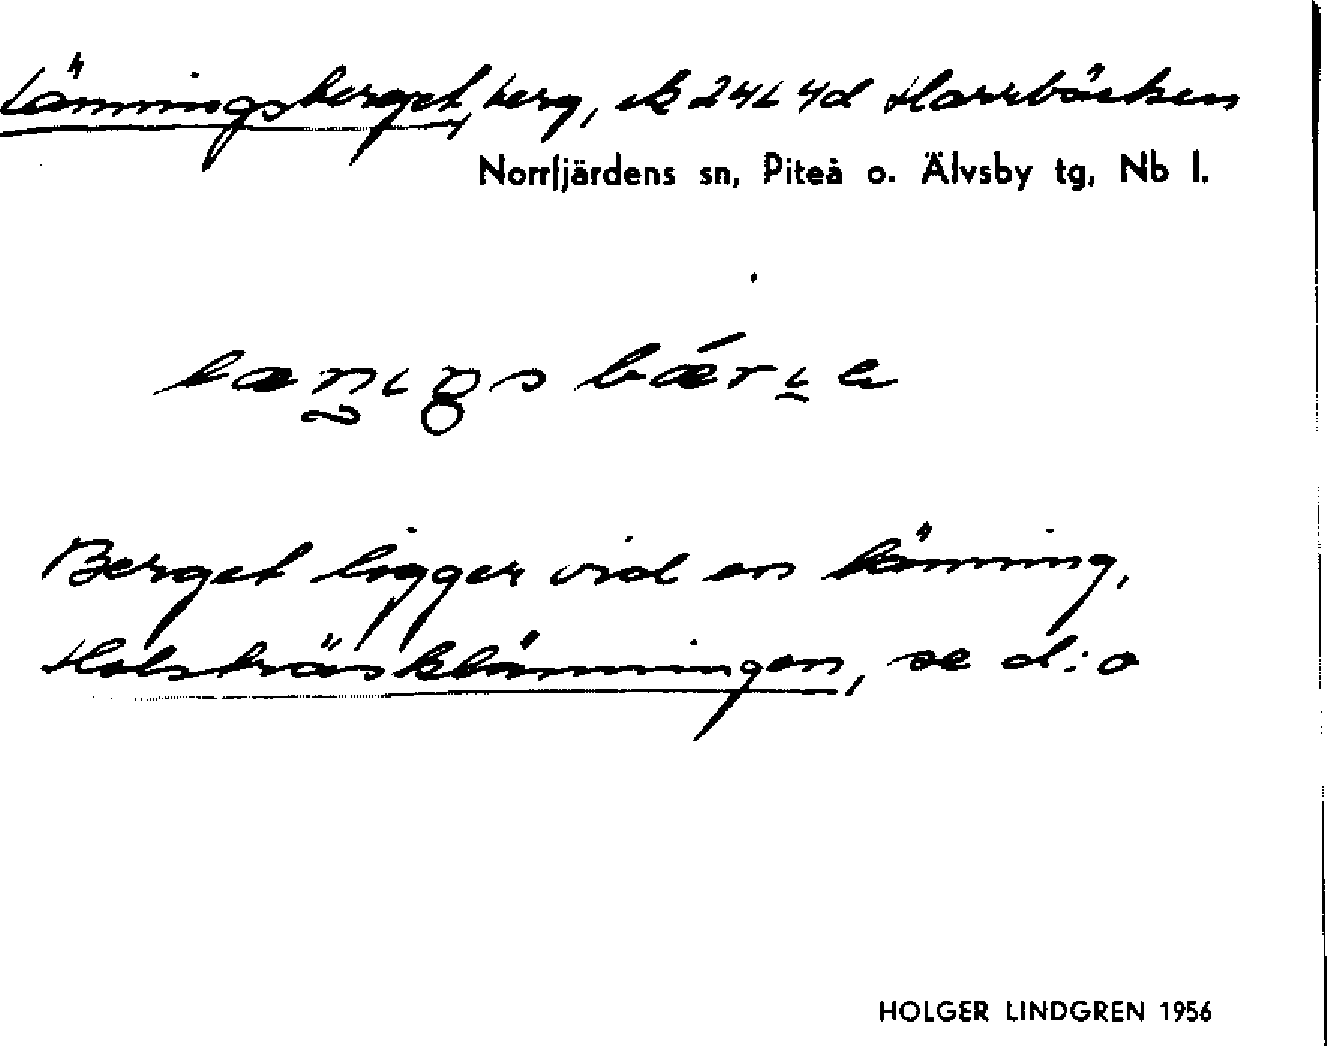 Länningsberget, berg, ek 24L 4d Harrbäcken
Norrfjärdens sn, Piteå o. Älvsby tg, Nb l.
Berget ligger vid en länning,
Holsträsklänningen, se d:o
HOLGER LINDGREN 1956